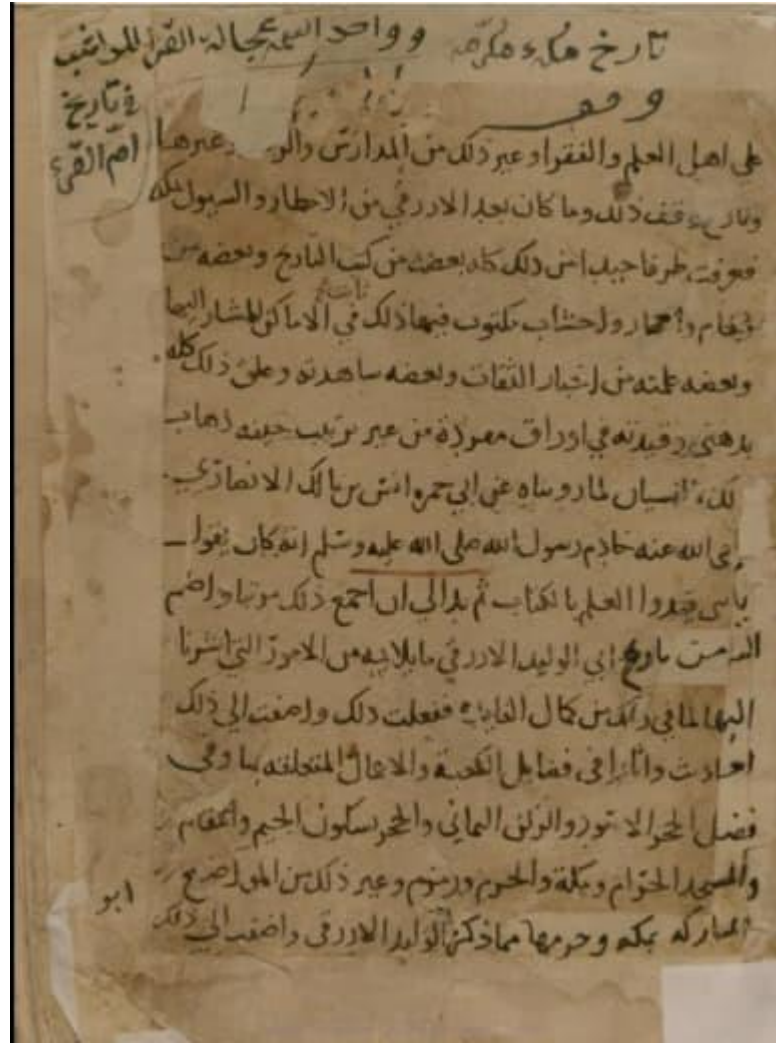 تاريخ مكة مكرمة وواحد اسمه عجالة القرا للراغب
في تاريخ
ام القرى
وقف
علي اهل العلم والفقرا وغير ذلك من المدارس وغيرها
وتاريخ وقف ذلك وما كان بعد الازرقي من الامطار والسيول بمكة
فعرفت طرفا جيدا من ذلك كله بعضه من كتب التاريخ وبعضه من
رخام واحجار واخشاب مكتوب فيها ذلك ثابتة في الاماكن المشار اليها
وبعضه علمته من اخبار الثقات وبعضه شاهدته وعلق ذلك كله
بذهني وقيدته في اوراق مفردة من غير ترتيب خيفة ذهاب
ذلك بالنسيان لما رويناه عن ابي حمزة انس بن مالك الانصاري
رضي الله عنه خادم رسول الله صلى الله عليه وسلم انه كان يقول
يا بني قيدوا العلم بالكتاب ثم بدا لي ان اجمع ذلك مرتبا واضم
اليه من تاريخ ابي الوليد الازرقي ما يلايمه من الامور التي اشرنا
اليها لما في ذلك من كمال الفايدة ففعلت ذلك واضفت الي ذلك
احاديث واثارا في فضايل الكعبة والاعمال المتعلقة بها وفي
فضل الحجر الاسود والركن اليماني والحجر بسكون الجيم والمقام
والمسجد الحرام ومكة والحرم وزمزم وغير ذلك من المواضع
المباركة بمكة وحرمها مما ذكره ابو الوليد الازرقي واضفت الي ذلك